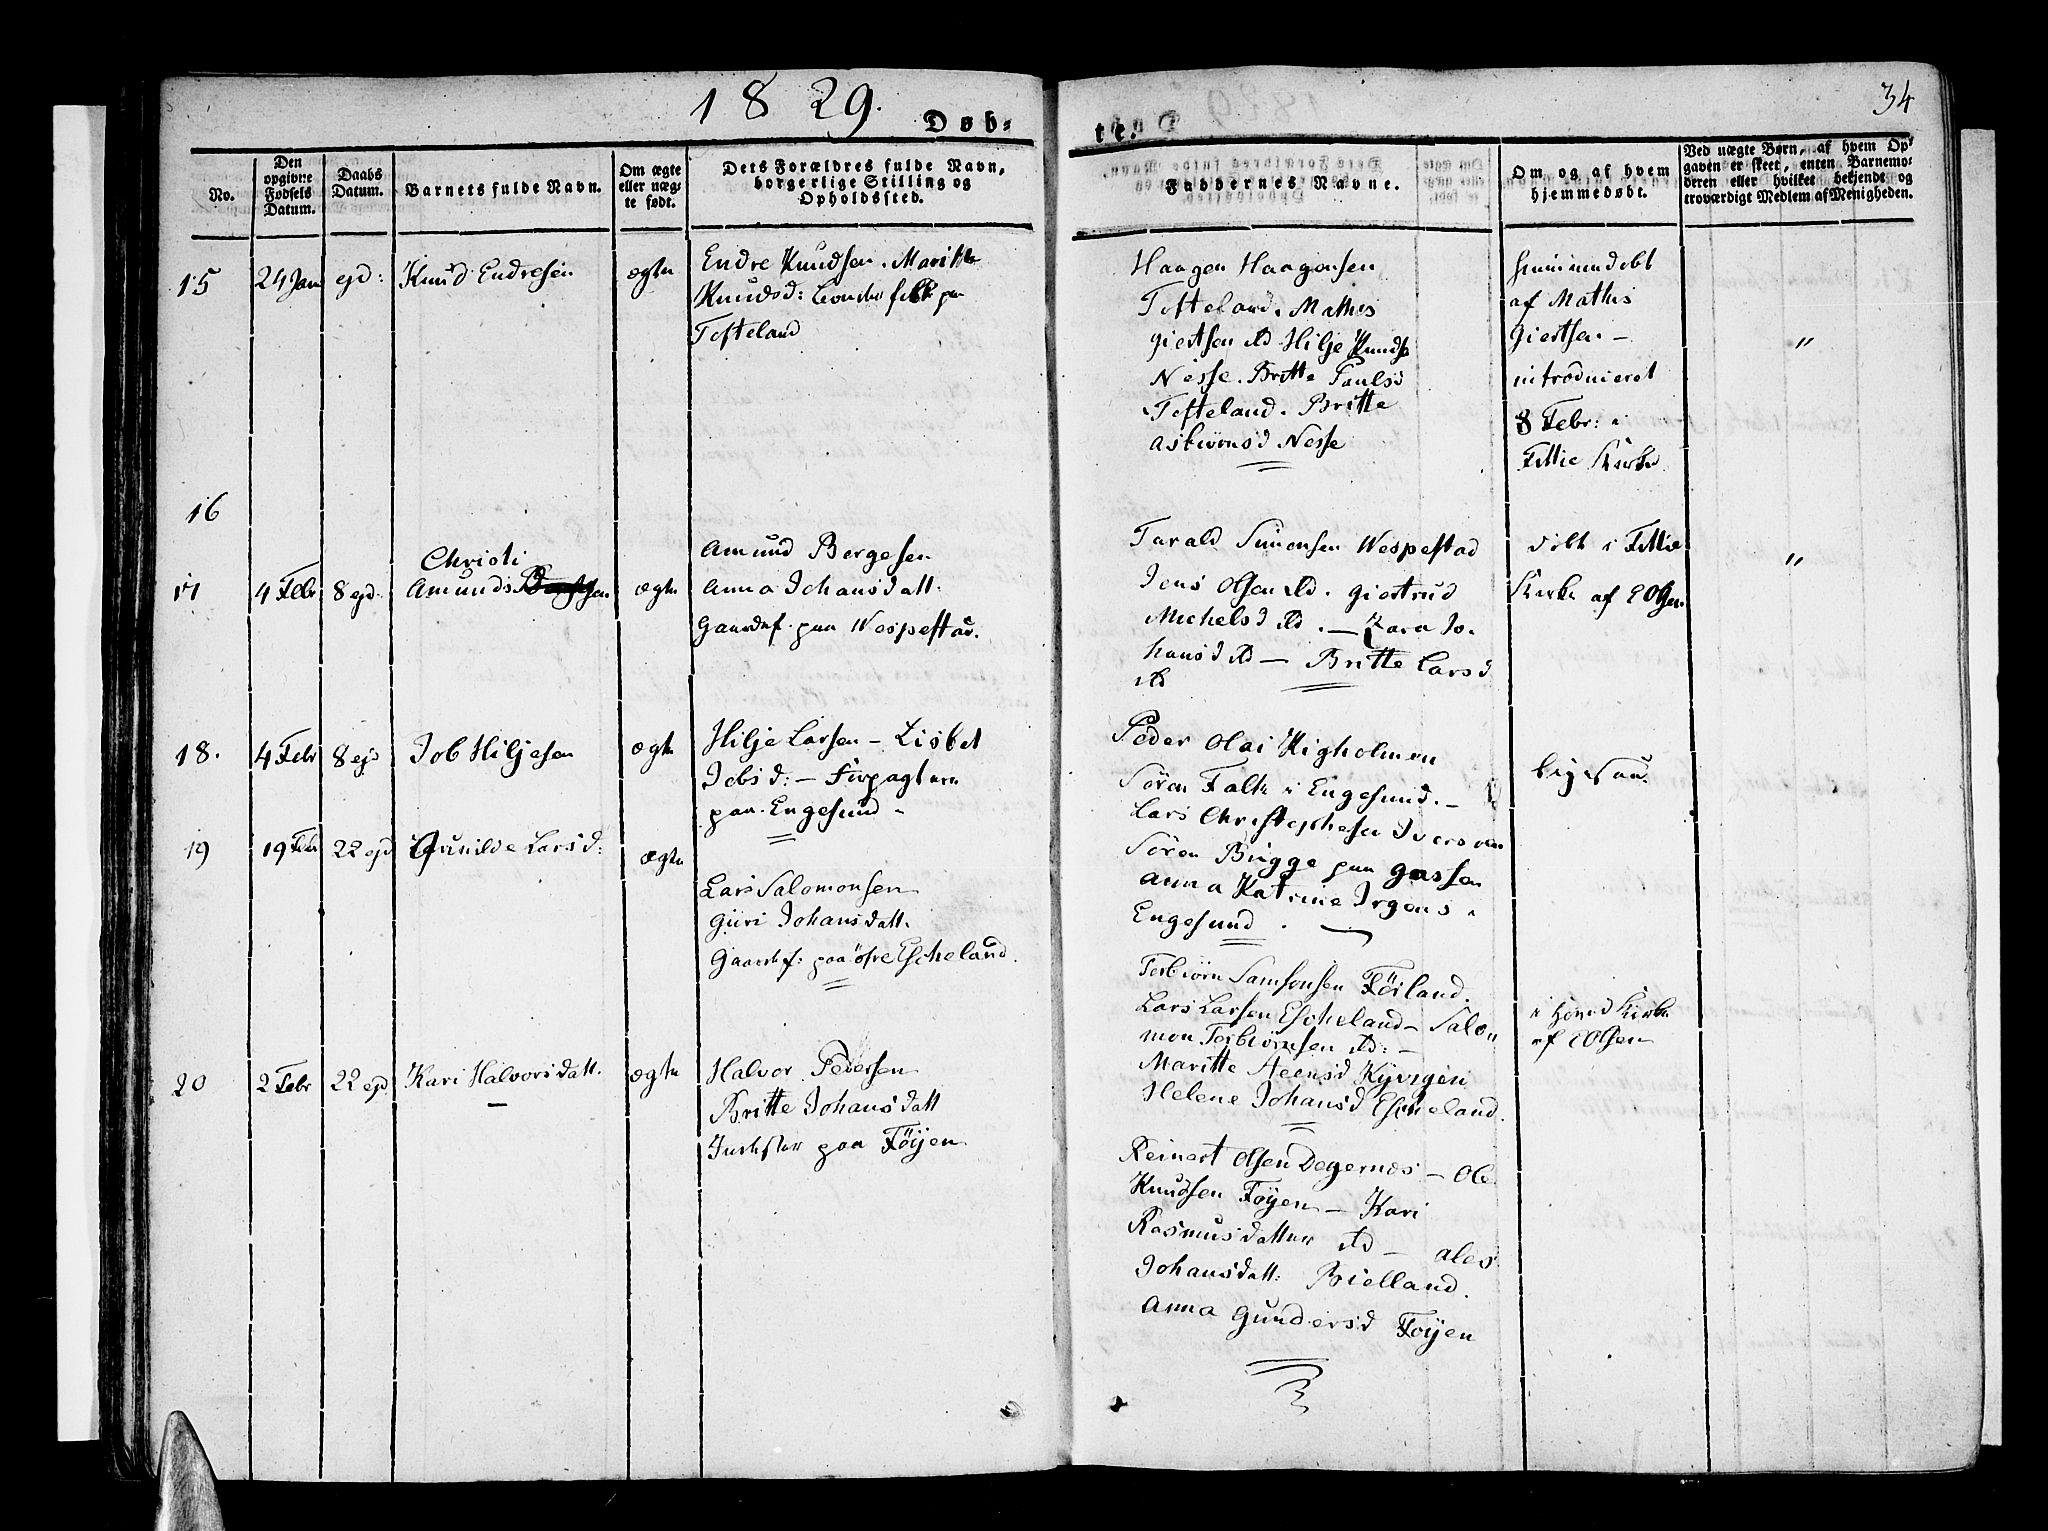 1829.
Døb-
te.
34
No.
Den opgivne Fødsels Datum.
Daabs Datum.
Barnets fulde Navn.
Om ægte eller uæg-te født.
Dets Forældres fulde Navn, borgerlige Stilling og Opholdssted.
Faddernes Navne.
Om og af hvem hjemmedøbt.
Ved uægte Børn, af hvem Op-
gaven er skeet, enten Barnemo-
deren eller hvilket bekjendt og
troværdigt Medlem af Menigheden.
15 24 Jan ejd: Knud Endresen ægte
Endre Knudsen. Maritte
Knudsd: folk paa
Tofteland
Haagen Haagensen
Tofteland. Mathis
Giertsen ibd Hilje Knuds
Nesse. Britte Pauls
Tofteland. Britte
Asbiørnsd Nesse
hiemmedøbt
af Mathis
Giertsen –
introduceret
8 Febr: i
Fittie Kirke
"
16
Christi
17 4 Febr 8 ejd. Amunds ægte
Amund Børgesen
Anna Johansdatt.
Gaardf. paa Wespestad.
Tarald Simonsen Wespestad
Jens Olsen ibd. Giertrud
Michelsd ibd. – Zara Jo-
hansd ibd – Britte Larsd
ibd
døbt i Fittie
Kirke af EOlsen
"
18. 4 Febr 8 ejd Job Hiljesen ægte
Hilje Larsen – Lisbet
Jobsd: – Forpagtere
paa Engesund –
Peder Olai Kigholmen
Sören Falk i Engesund. –
Lars Christophersen
Sören Bugge paa Gaasen
Anna Katrine Irgens i
Engesund. –
ligesaa.
19 19 Feb 22 ejd Gunilde Larsd: ægte
Lars Salomonsen
Guri Johansdatt.
Gaardf: paa öfre Escheland.
Torbiörn Samsonsen Föiland.
Lars Larsen Escheland – Salo
mon Torbiörnsen ibd: –
Maritte Steensd Kyvigen
Helene Johansd Escheland.
i Hoved Kirke
af EOlsen
20 2 Febr 22 ejd Kari Halvorsdatt. ægte
Halvor Pedersen
Britte Johansdatt
Inderster paa Föyen
Reinert Olsen Degernæs – Ole
Knudsen Föyen – Kari
Rasmusdatter ibd – Ales
Johansdatt: Bielland.
Anna Gundersd Föyen